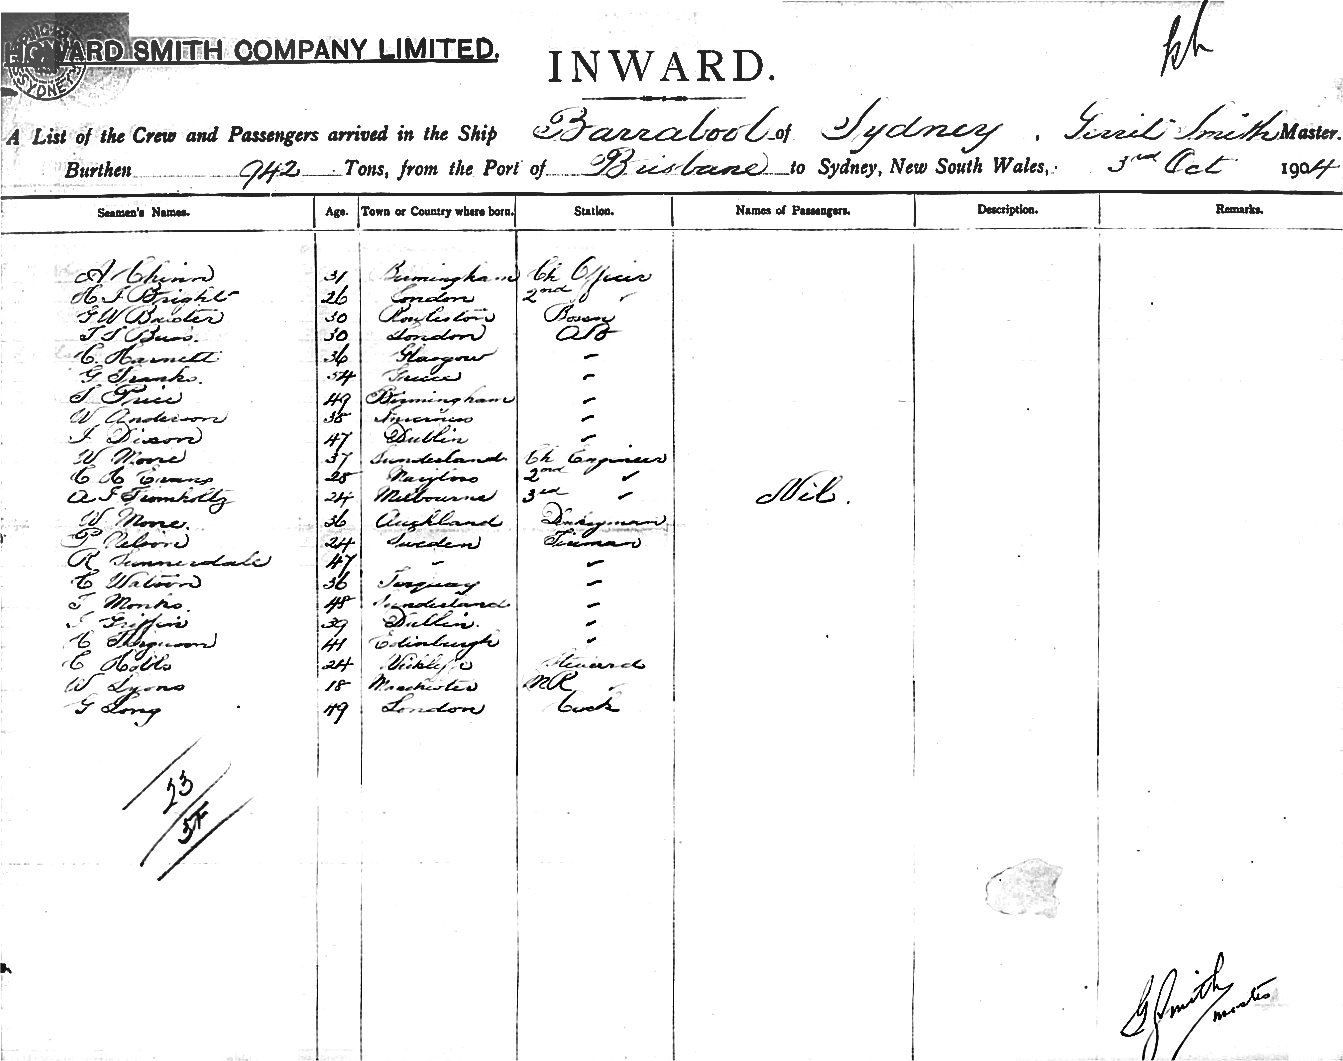 HOWARD SMITH COMPANY LIMITED.
INWARD.
A List of the Crew and Passengers arrived in the Ship Barrabool of Sydney, Gerrit Smith Master.
Burthen 942 Tons, from the Port of Brisbane to Sydney, New South Wales, 3rd Oct 1904
Seamen's Names. Age. Town or Country where born. Station. Names of Passengers. Description. Remarks.
A Chinn 31 Birmingham Ch Officer
H J Bright 26 London 2nd "
G W Baxter 30 Rowleston Bosen
T S Buss. 30 London AB
C. Harnett 36 Glasgow "
G Franks. 54 Greece "
S Price 49 Birmingham "
W Anderson 38 "
J Dixon 47 Dublin "
W Moore 37 Sunderland Ch Engineer
C H Evans 28 2nd "
A J Tromholtz 24 Melbourne 3rd " Nil.
W Moore. 36 Auckland Donkeyman
P Nelson 24 Sweden Fireman
R Sunnerdale 47 " "
C Watson 36 Torquay "
T Monks. 48 Sunderland "
J Griffin 39 Dublin. "
C Ferguson 41 Edinburgh "
C Hobbs 24 Steward
W Lyons 18 Manchester MR "
G Long 49 London Cook
23
G Smith
master